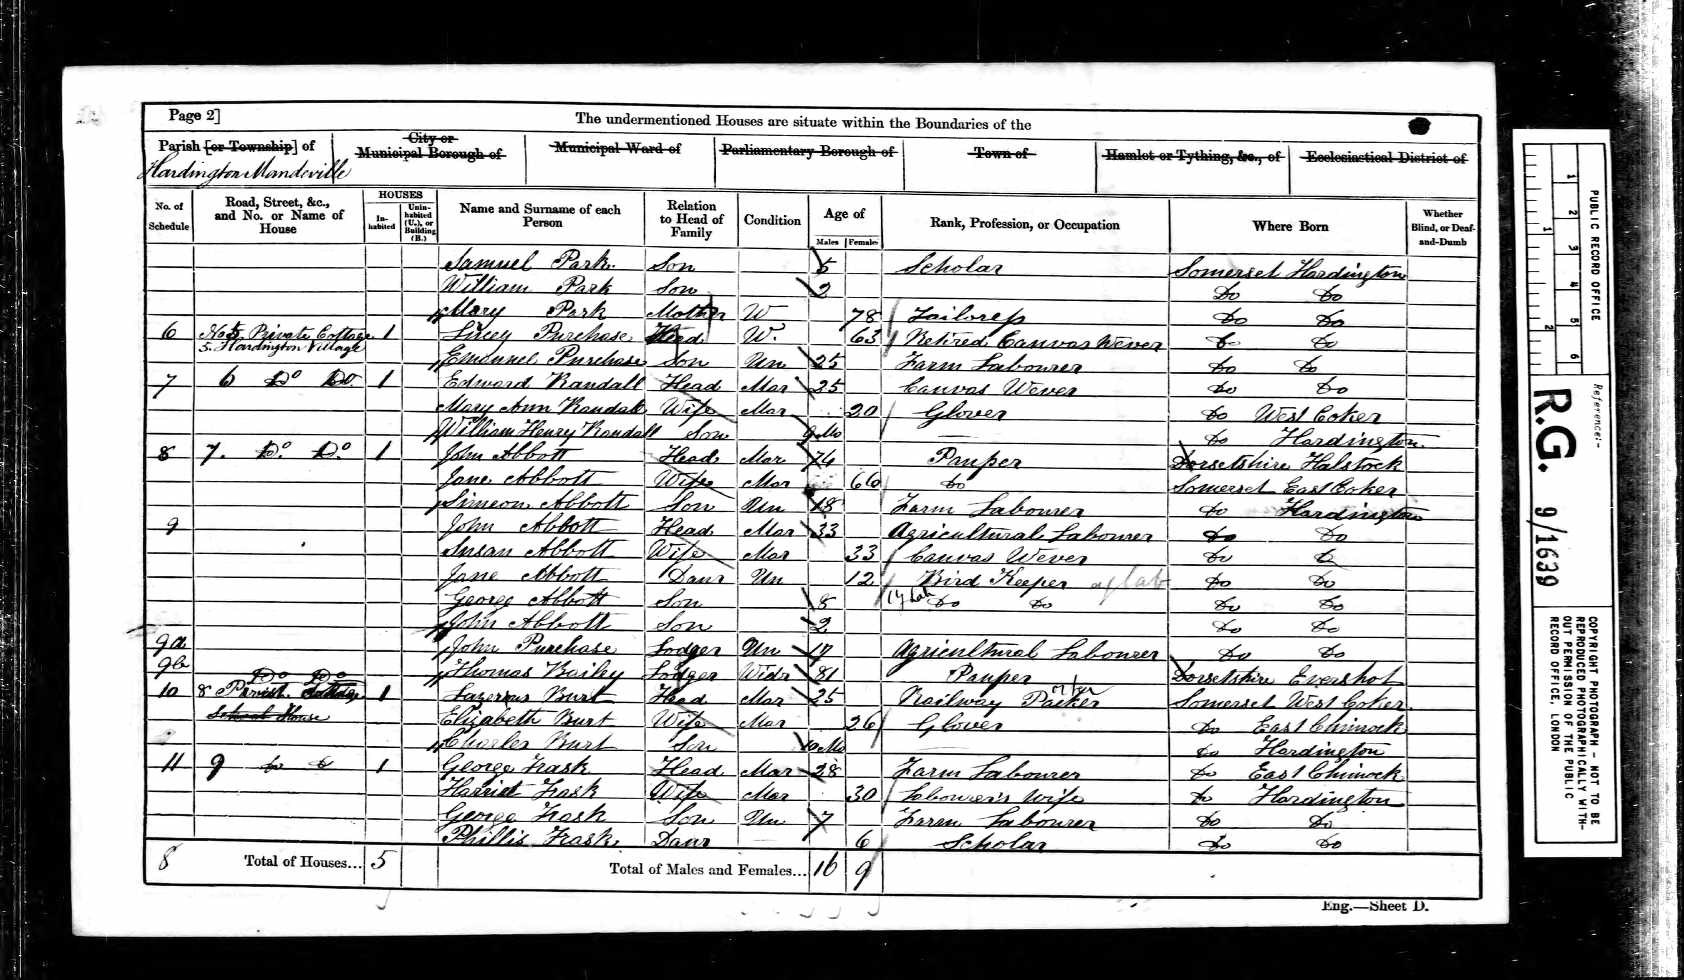 Page 2]
The undermentioned Houses are situate within the Boundaries of the
Parish [or Township] of
City or Municipal Borough of
Municipal Ward of
Parliamentary Borough of
Town of
Hamlot or Tything, &c., of
Ecclesiastical District of
Hardington Mandeville
No. of Schedule
Road, Street, &c., and No. or Name of House
HOUSES
In-habited
Unin-habited (U.), or Building (B.)
Name and Surname of each Person
Relation to Head of Family
Condition
Age of
Males
Females
Rank, Profession, or Occupation
Where Born
Whether Blind, or Deaf-and-Dumb
Samuel Park Son 5 Scholar Somerset Hardington
William Park Son 2 Do Do
Mary Park Mother W 78 Tailoress Do Do
6 No 5 Private Cottage 1 Lucey Purchase Head W. 63 Retired Canvas Wever Do Do
5. Hardington Village
Emanuel Purchase Son Un 25 Farm Labourer Do Do
7 6 Do Do 1 Edward Randall Head Mar 25 Canvas Wever Do Do
Mary Ann Randall Wife Mar 20 Glover Do West Coker
William Henry Randall Son 9 Mo Do Hardington
8 7. Do Do 1 John Abbott Head Mar 74 Pauper Dorsetshire Halstock
Jane Abbott Wife Mar 66 Do Somerset East Coker
Simeon Abbott Son Un 18 Farm Labourer Do Hardington
9 John Abbott Head Mar 33 Agricultural Labourer Do Do
Susan Abbott Wife Mar 33 Canvas Wever Do Do
Jane Abbott Daur Un 12 Bird Keeper ag lab Do Do
George Abbott Son 8 Do Do Do Do
John Abbott Son 2 Do Do
9a John Purchase Lodger Un 17 Agricultural Labourer Do Do
9b Thomas Bailey Lodger Widr 81 Pauper Dorsetshire Evershot
Do Do
10 8 Parish Cottage 1 Lazerous Burt Head Mar 25 Railway Packer Somerset West Coker
School House
Elizabeth Burt Wife Mar 26 Glover Do East Chinnock
Charles Burt Son 10 Mo Do Hardington
11 9 Do Do 1 George Trask Head Mar 28 Farm Labourer Do East Chinnock
Harriet Trask Wife Mar 30 Labourer's Wife Do Hardington
George Trask Son Un 7 Farm Labourer Do Do
Phillis Trask Daur 6 Scholar Do Do
8 Total of Houses... 5 Total of Males and Females... 16 9
Eng.—Sheet D.
PUBLIC RECORD OFFICE
1 2 3 4 5 6
1 2
Reference:-
R.G. 9/1639
COPYRIGHT PHOTOGRAPH - NOT TO BE
REPRODUCED PHOTOGRAPHICALLY WITH-
OUT PERMISSION OF THE PUBLIC
RECORD OFFICE, LONDON